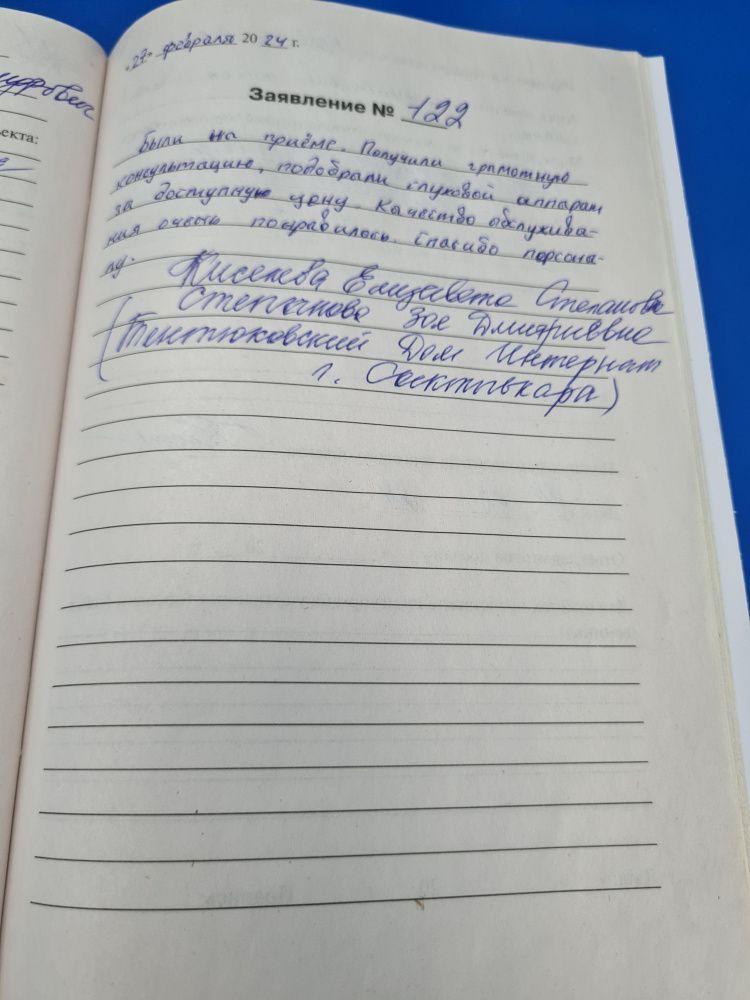 «27» февраля 2024 г.
Заявление № 122
Были на приёме. Получили грамотную
консультацию, подобрали слуховой аппарат
за доступную цену. Качество обслужива-
ния очень понравилось. Спасибо персона-
лу.
Киселева Елизавета Степановна
Степанова Зоя Дмитриевна
(Тентюковский Дом Интернат
г. Сыктывкара)
екта: